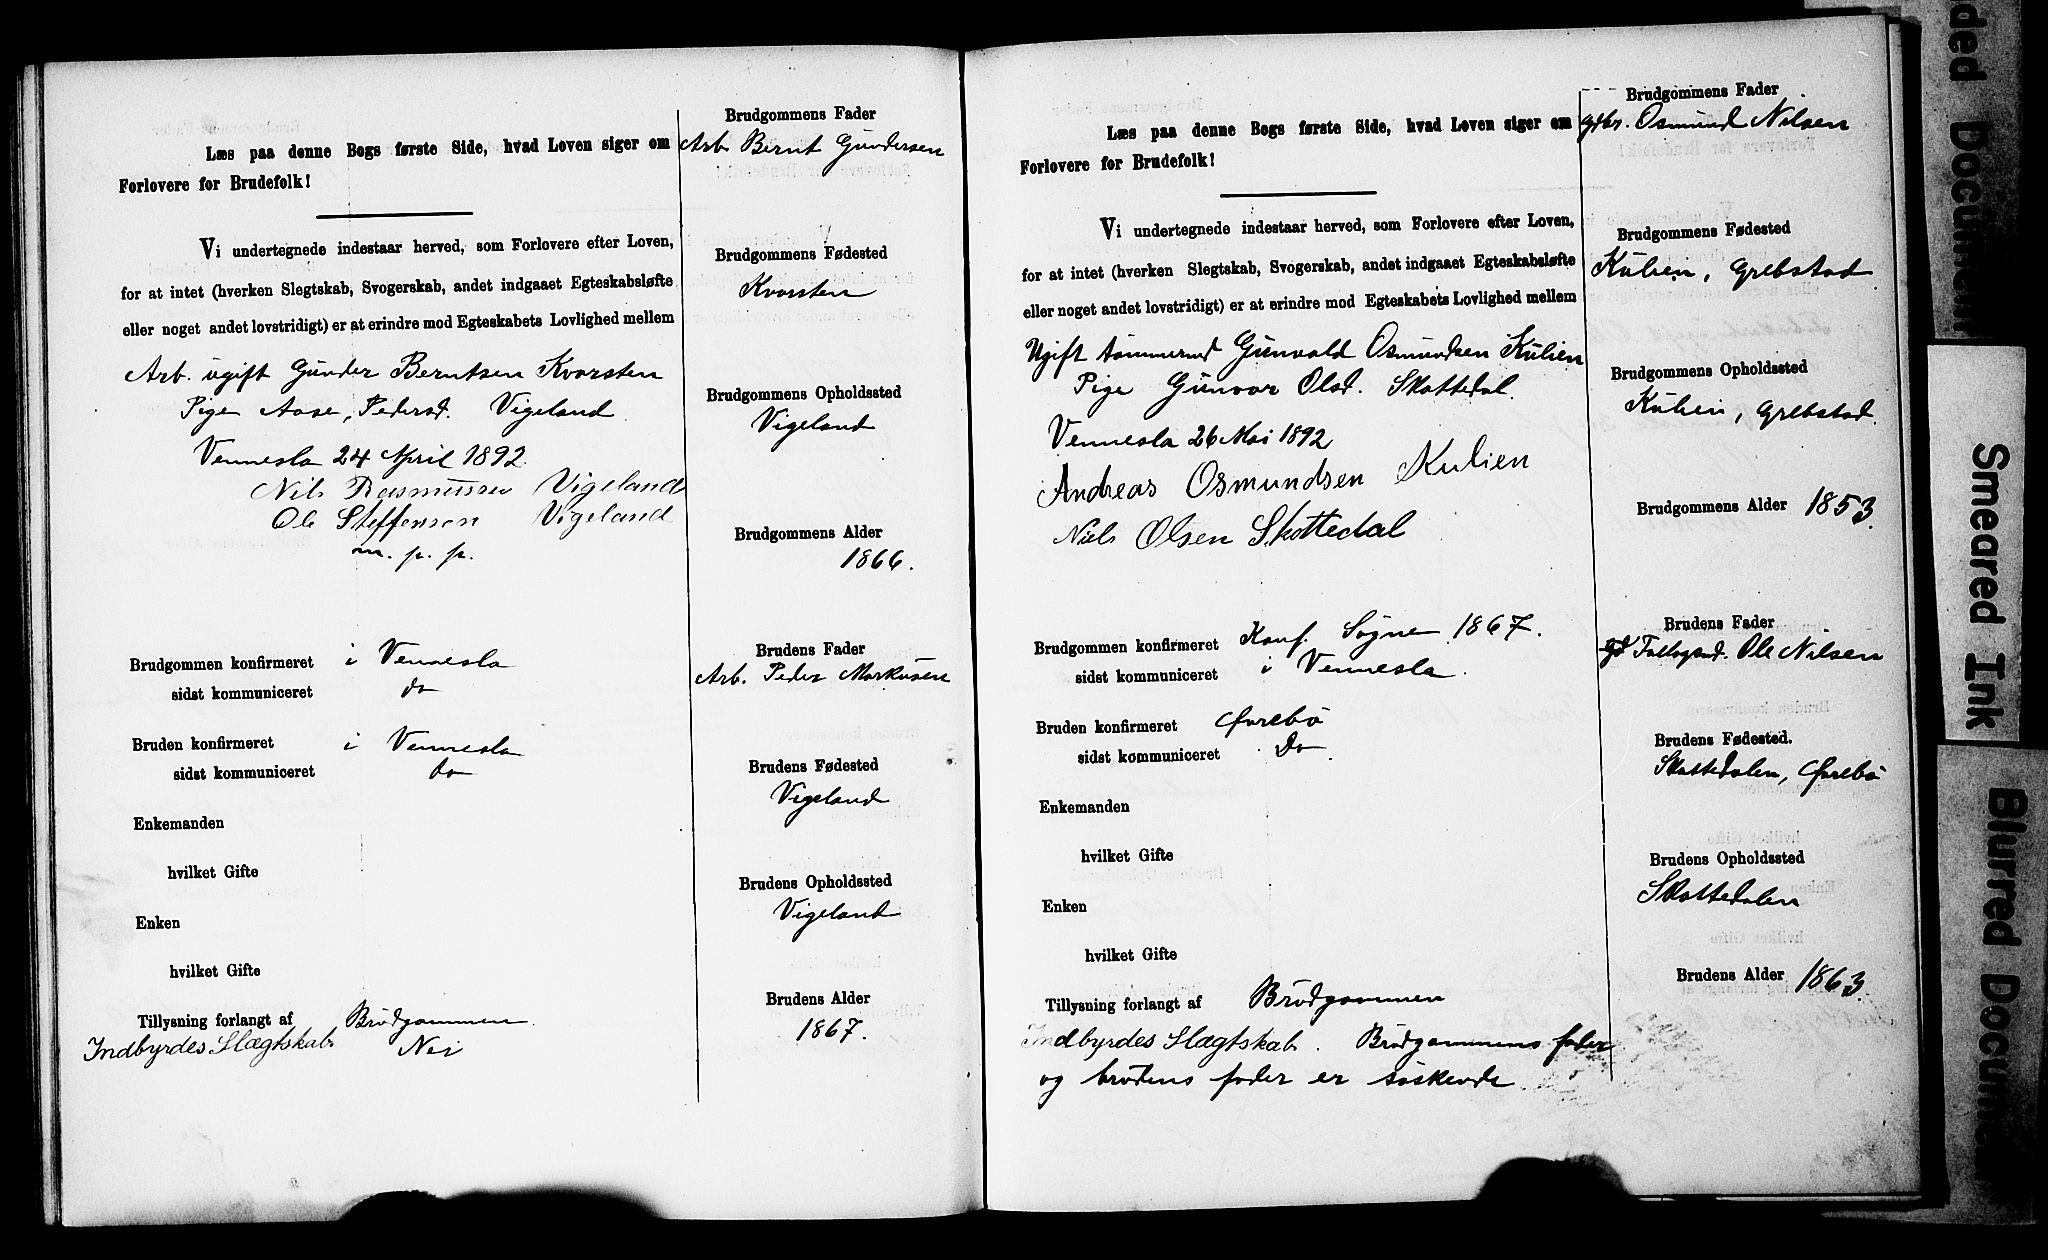 Læs paa denne Bogs første Side, hvad Loven siger om
Forlovere for Brudefolk!
Vi undertegnede indestaar herved, som Forlovere efter Loven,
for at intet (hverken Slegtskab, Svogerskab, andet indgaaet Egteskabsløfte
eller noget andet lovstridigt) er at erindre mod Egteskabets Lovlighed mellem
Arb. ugift Gunder Berntsen Kvarsten
Pige Aase, Pedersd. Vigeland
Vennesla 24 April 1892.
Nils Rasmussen Vigeland
Ole Steffensen Vigeland
m. p. p.
Brudgommen konfirmeret i Vennesla
sidst kommuniceret do
Bruden konfirmeret i Vennesla
sidst kommuniceret do
Enkemanden
hvilket Gifte
Enken
hvilket Gifte
Tillysning forlangt af Brudgommen
Indbyrdes Slægtskab Nei
Brudgommens Fader
Arb. Bernt Gundersen
Brudgommens Fødested
Kvarsten
Brudgommens Opholdssted
Vigeland
Brudgommens Alder
1866.
Brudens Fader
Arb. Peder Markusen
Brudens Fødested
Vigeland
Brudens Opholdssted
Vigeland
Brudens Alder
1867.
Læs paa denne Bogs første Side, hvad Loven siger om
Forlovere for Brudefolk!
Vi undertegnede indestaar herved, som Forlovere efter Loven,
for at intet (hverken Slegtskab, Svogerskab, andet indgaaet Egteskabsløfte
eller noget andet lovstridigt) er at erindre mod Egteskabets Lovlighed mellem
Ugift tømmermd Gunvald Osmundsen Kulien
Pige Gunvor Olsd. Skottedal.
Vennesla 26 Mai 1892
Andreas Osmundsen Kulien
Niels Olsen Skottedal
Brudgommen konfirmeret Konf. Søgne 1867.
sidst kommuniceret i Vennesla.
Bruden konfirmeret Øvrebø
sidst kommuniceret Do
Enkemanden
hvilket Gifte
Enken
hvilket Gifte
Tillysning forlangt af Brudgommen
Indbyrdes Slægtskab. Brudgommens fader
og brudens fader er søskende.
Brudgommens Fader
gdbr. Osmund Nilsen
Brudgommens Fødested
Kulien, Grebstad
Brudgommens Opholdssted
Kulien, Grebstad.
Brudgommens Alder 1853.
Brudens Fader
Ole Nilsen
Brudens Fødested.
Skottedalen, Øvrebø
Brudens Opholdssted
Skottedalen
Brudens Alder 1863.
ded Documen
Smeared Ink
Blurred Docum